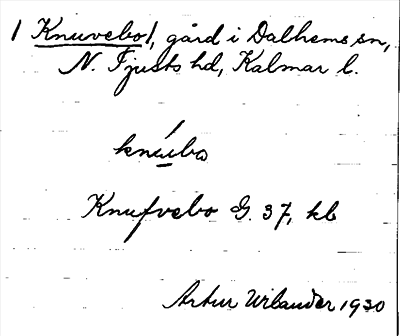 / Knuvebo /, gård i Dalhems sn,
N. Tjusts hd, Kalmar l.
knu̱bo
Knufvebo G. 37, kb
Artur Urbander 1930